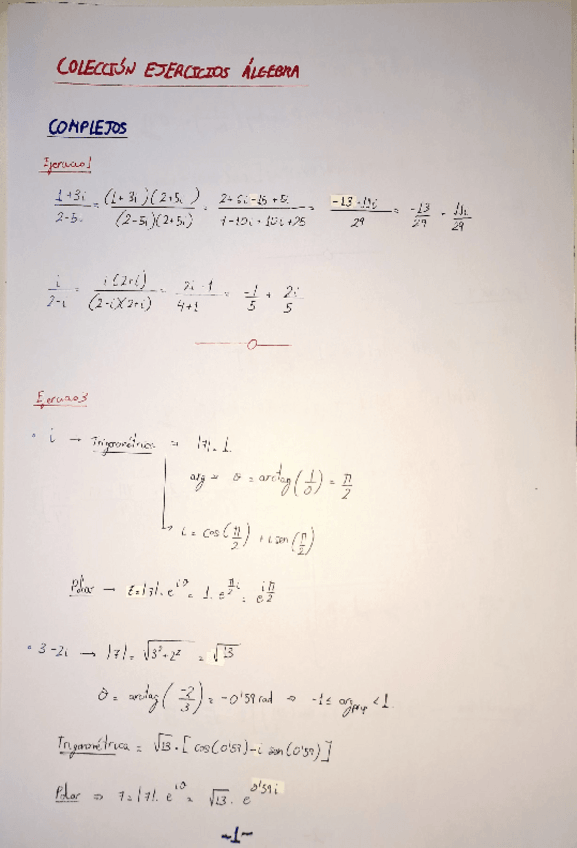 COLECCIÓN EJERCICIOS ÁLGEBRA
COMPLEJOS
Ejercicio 1
(1+3i)/(2-5i) = (1+3i)(2+5i)/((2-5i)(2+5i)) = = -13 + 11i/29 = -13/29 + 11i/29
i/(2-i) = i(2+i)/((2-i)(2+i)) = (2i-1)/(4+1) = -1/5 + 2i/5
Ejercicio 3
• i → Trigonométrica ⇒ |z| = 1.
arg ⇒ θ = arctag(1/0) = π/2
→ i = cos(π/2) + i sen(π/2)
Polar → z = |z|. e^(iθ) = 1. e^(π/2 i) = e^(iπ/2)
• 3-2i → |z| = √(3²+2²) = √13
θ = arctag(-2/3) = -0'59 rad ⇒ -1 ≤ arg < 1.
Trigonométrica = √13 · [cos(0'59) - i sen(0'59)]
Polar ⇒ z = |z|. e^(iθ) = √13 · e^(0'59i)
~1~